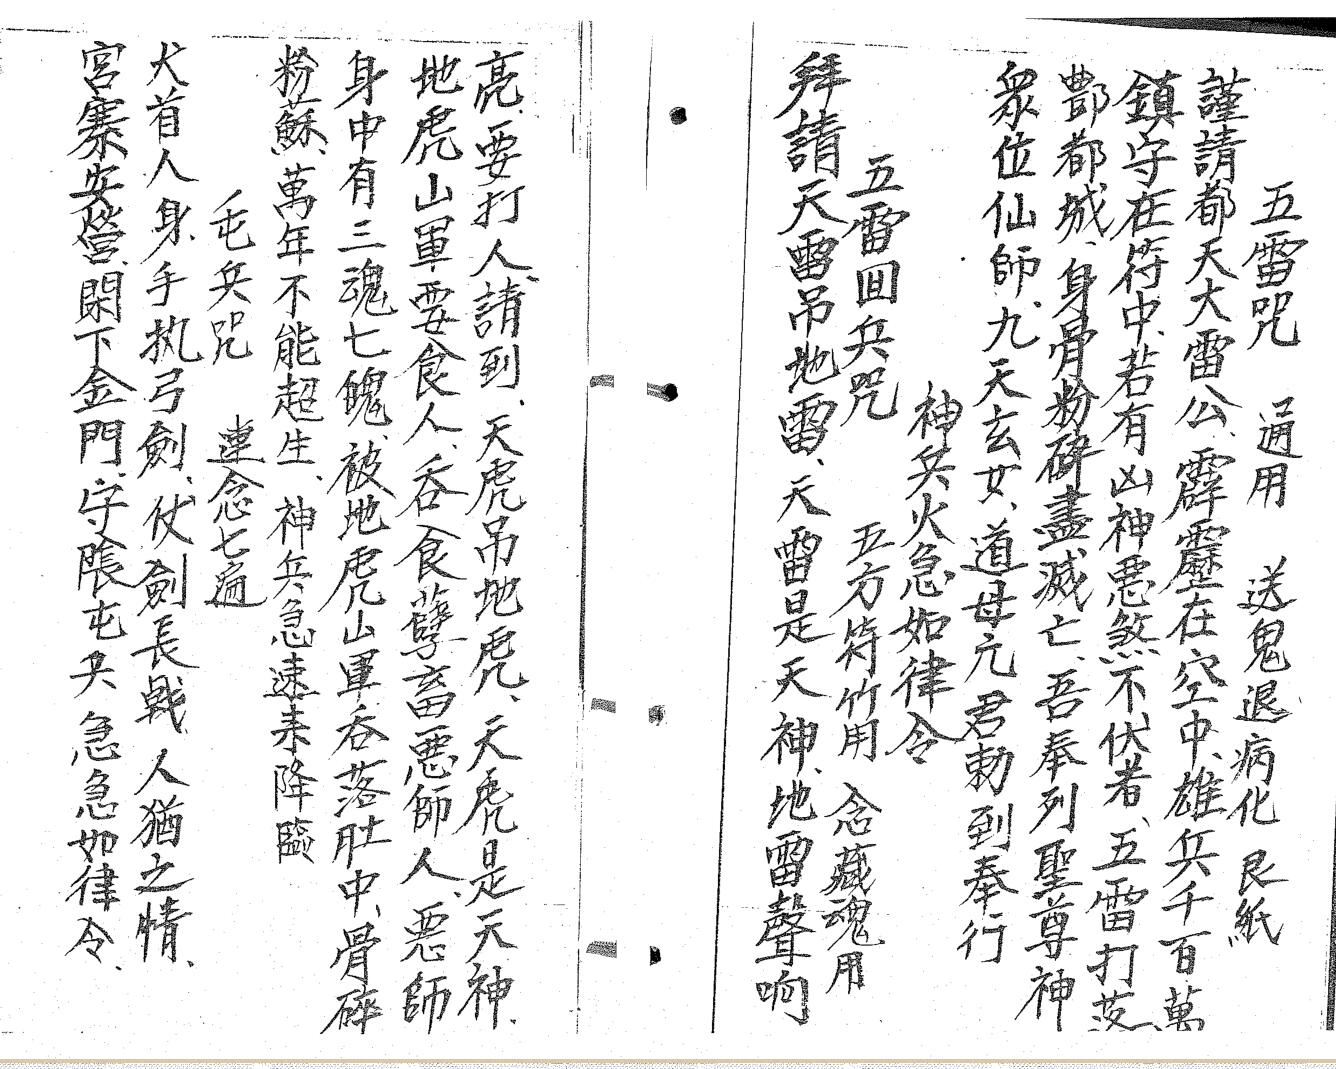 五雷咒 通用 送鬼退病化良紙
謹請都天大雷公、霹靂在空中、雄兵千百萬
鎮守在符中、若有凶神惡煞不伏者、五雷打落
酆都城、身骨粉碎盡滅亡、吾奉列聖尊神
眾位仙師、九天玄女、道母元君勅到奉行
神兵火急如律令
五雷囬兵咒 五方符竹用 念藏魂用
拜請天雷吊地雷、天雷是天神、地雷聲响
亮、要打人、請到、天虎吊地虎、天虎是天神、
地虎山軍要食人、吞食孽畜惡師人、惡師
身中有三魂七魄、被地虎山軍吞落肚中、骨碎
粉蘇、萬年不能超生、神兵急速來降臨
屯兵咒 連念七遍
犬首人身、手执弓劍、仗劍長戟、人猶之情、
宮寨安營、閑下金門、守賬屯兵 急急如律令、